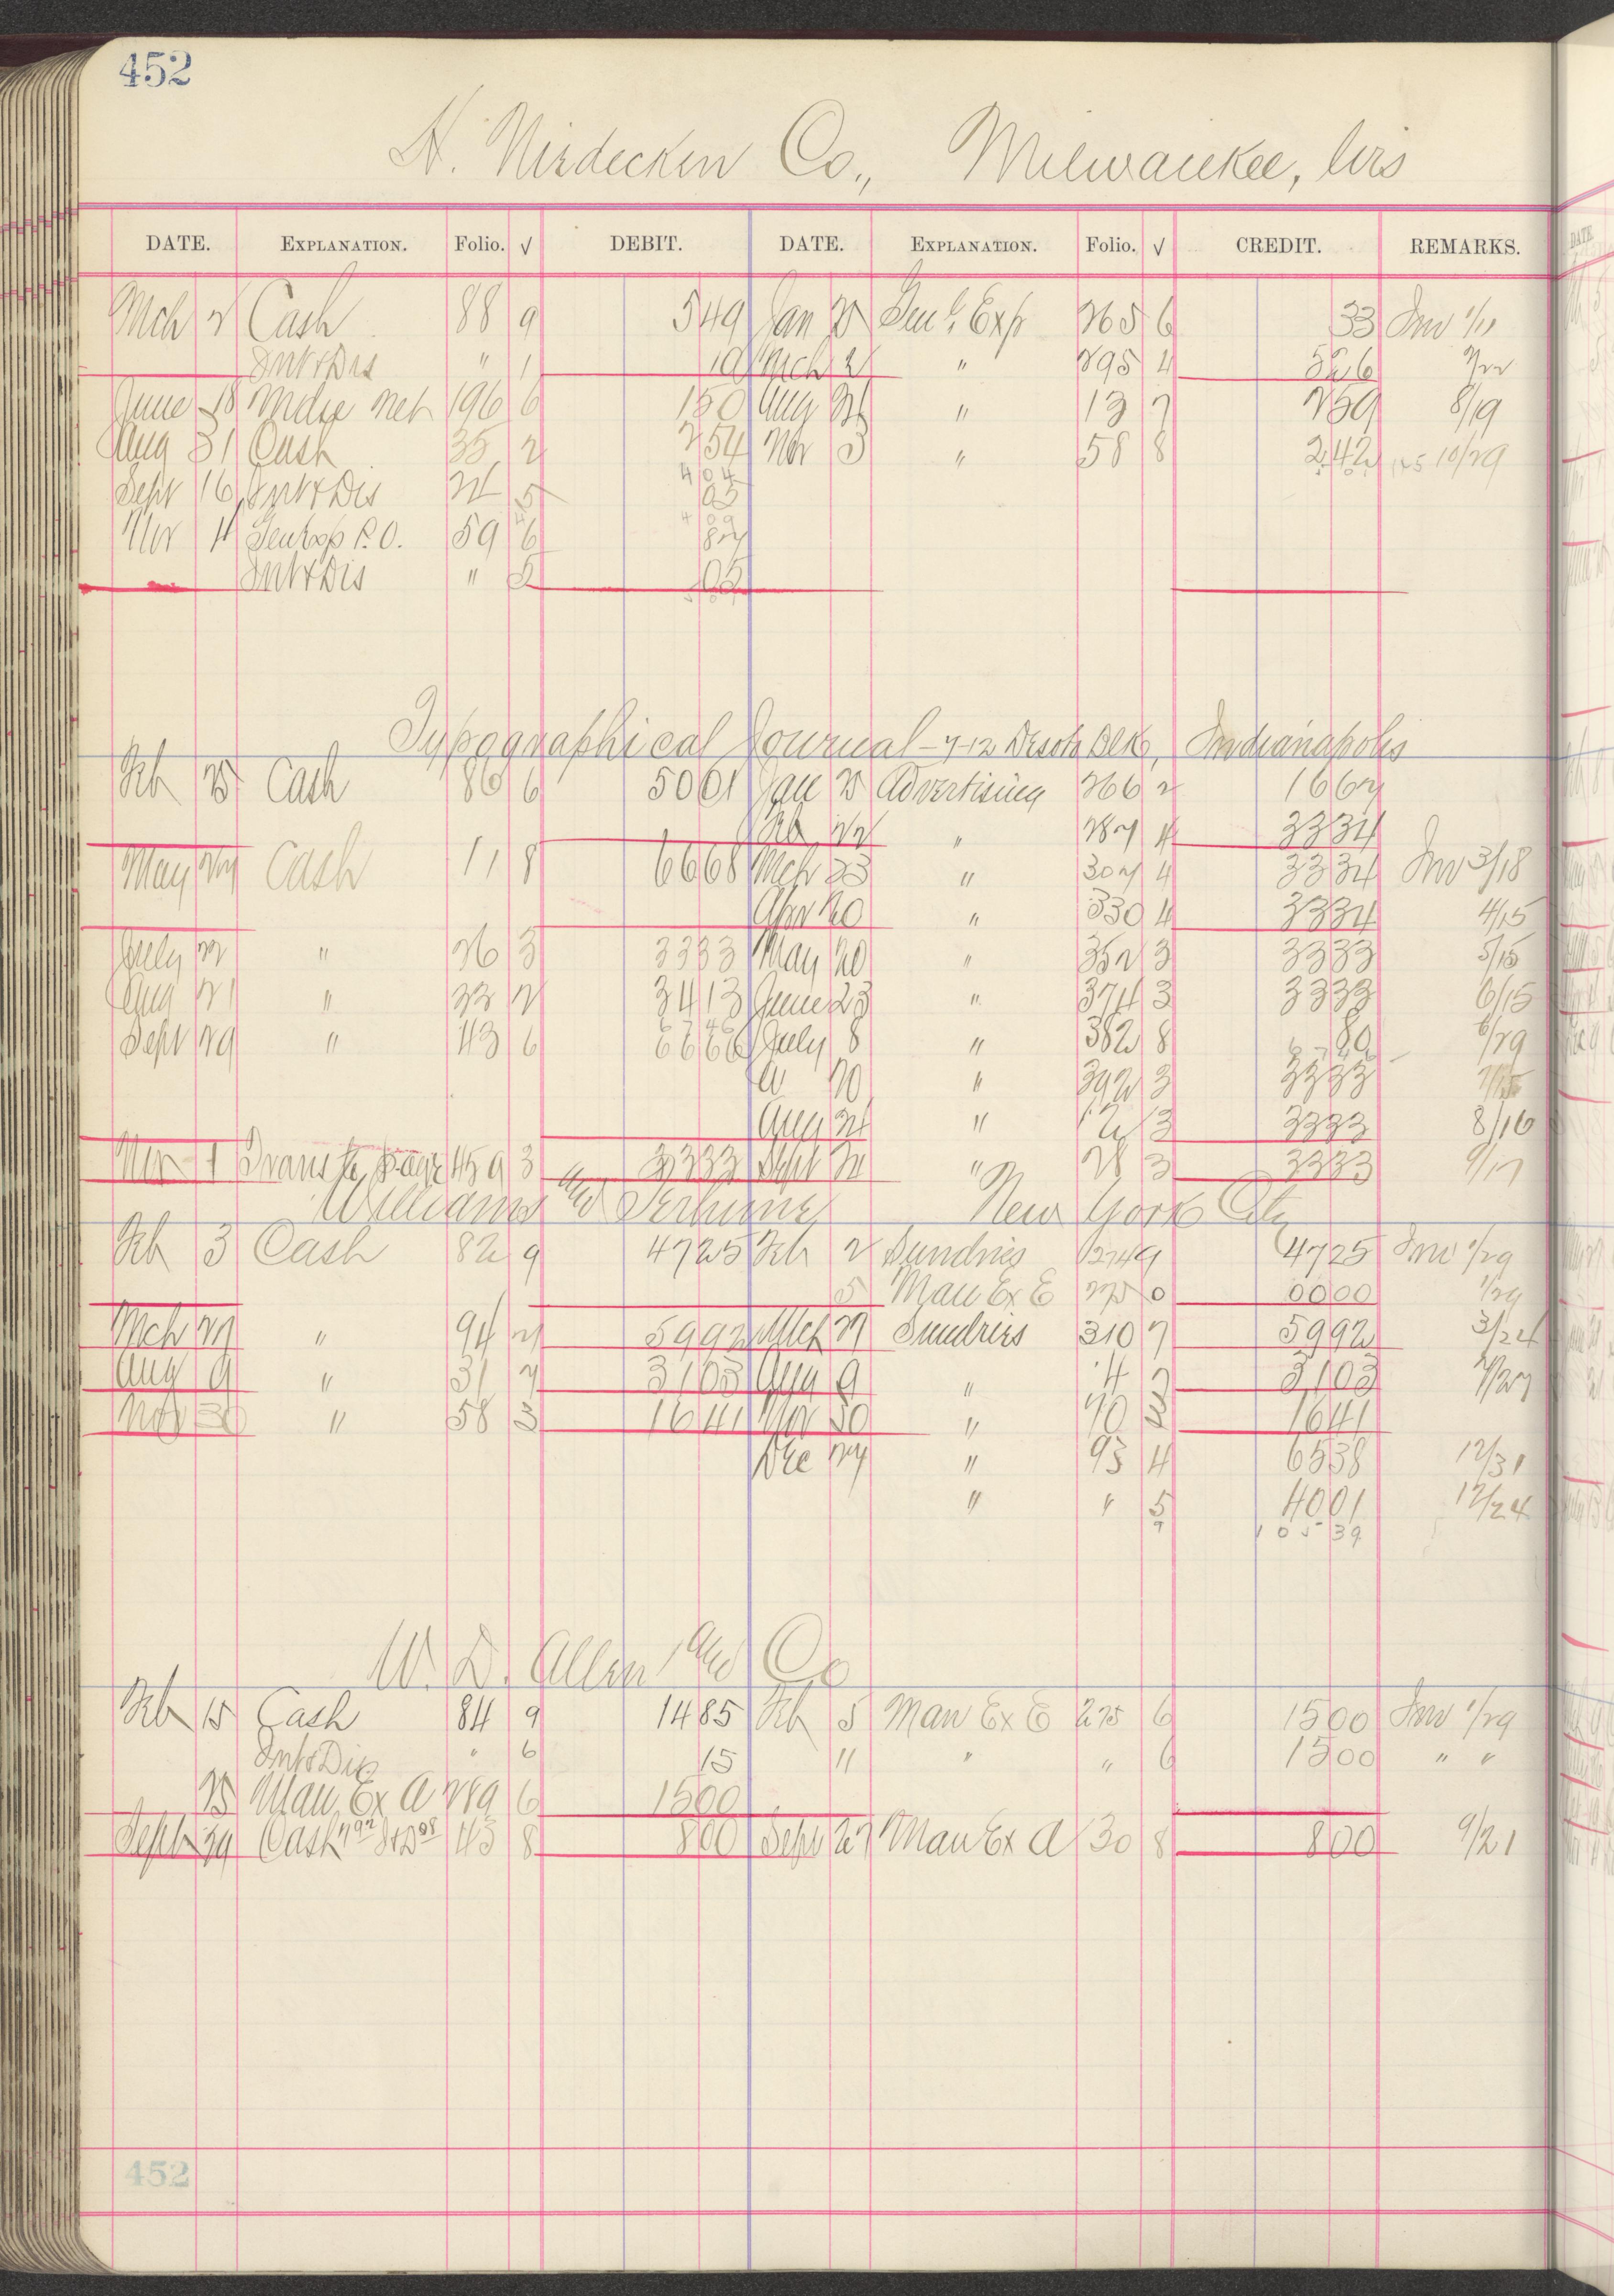 452
H. Nirdecken Co., Milwaukee, Wis
DATE. EXPLANATION. Folio. √ DEBIT. DATE. EXPLANATION. Folio. √ CREDIT. REMARKS.
Mch 2 Cash 88 9 549 Jan 25 Genl. Exp 265 6 33 Inv 1/11
Int & Dis " 1 10 Mch 2 " 295 4 526 2/22
June 18 Mdse Net 196 6 150 Aug 24 " 13 7 259 8/19
Aug 31 Cash 35 2 254 Nov 3 " 58 8 242 10/29
Sept 16 Int & Dis 24 5 05
Nov 4 P.O. 59 6 87
Int & Dis " 5 05
Typographical Journal - 7-12 DeSoto Blk, Indianapolis
Feb 25 Cash 86 6 5001 Jan 25 Advertising 266 2 1667
Feb 22 " 287 4 3334
May 27 Cash 11 8 6668 Mch 23 " 307 4 3334 Inv 3/18
Apr 20 " 330 4 3334 4/15
July 2 " 26 3 3333 May 20 " 352 3 3333 5/15
Aug 21 " 33 2 3413 June 23 " 374 3 3333 6/15
Sept 29 " 43 6 6666 July 8 " 382 8 80 6/29
" 20 " 392 3 3333
Aug 24 " 12 3 3333 8/16
Nov 1 Trans to page 459 3 3333 Sept 24 " 28 3 3333 9/17
Williams and Terhune New York City
Feb 3 Cash 82 9 4725 Feb 2 Sundries 274 9 4725 Inv 1/29
5 Man Ex E 275 0 0000 1/29
Mch 29 " 94 2 5992 Mch 29 Sundries 310 7 5992 3/24
Aug 9 " 31 7 3103 Aug 9 " 4 7 3103 7/27
Nov 30 " 58 3 1641 Nov 30 " 70 3 1641
Dec 27 " 93 4 6538 12/31
" " 5 4001 12/24
105 39
W. D. Allen and Co
Feb 15 Cash 84 9 1485 Feb 5 Man Ex E 275 6 1500 Inv 1/29
Int & Dis " 6 15 11 " " 6 1500 " "
25 Man Ex A 289 6 1500
Sept 29 Cash 792 I&D 08 43 8 800 Sept 27 Man Ex A 30 8 800 9/21
452